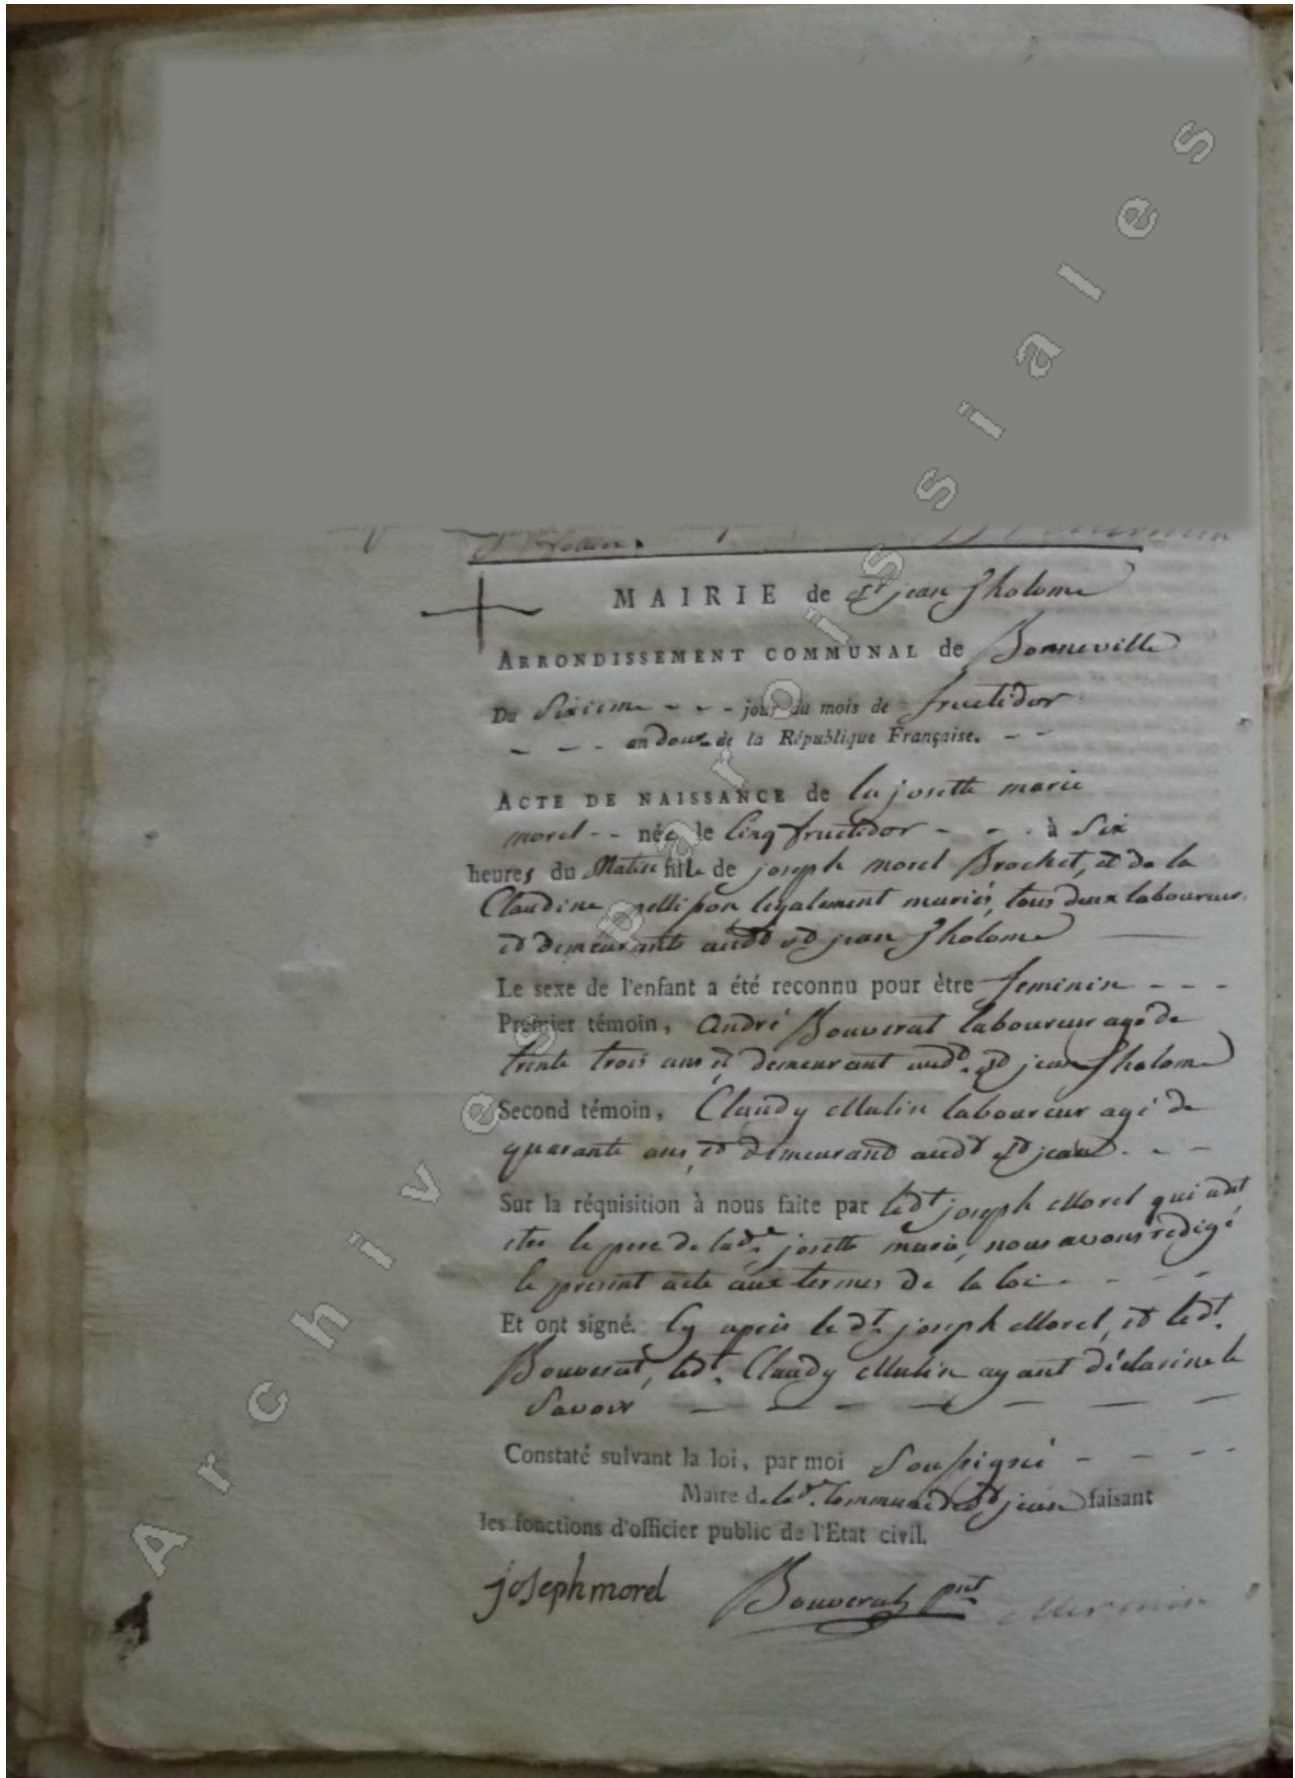 MAIRIE de St jean Tholome
ARRONDISSEMENT COMMUNAL de Bonneville
Du Sixieme - - - jour du mois de fructidor
- - - an douze de la République Française. - -
ACTE DE NAISSANCE de la josette marie
morel - - née le Cinq fructidor - - - à Six
heures du Matin fille de joseph morel Brochet, et de la
Claudine pellisson legalement mariés, tous deux laboureurs
et demeurants audt St jean Tholome
Le sexe de l'enfant a été reconnu pour être feminin - - -
Premier témoin, André Bouverat laboureur agé de
trente trois ans et demeurant audt. St jean Tholome
Second témoin, Claudy Malin laboureur agé de
quarante ans, et demeurand audt St jean. - -
Sur la réquisition à nous faite par ledt joseph Morel qui a dit
etre le pere de lade. josette marie, nous avons redigé
le present acte aux termes de la loi - - - -
Et ont signé. Cy après le dt. joseph Morel, et ledt.
Bouverat, ledt. Claudy Malin ayant déclaré ne le
Savoir - - - - - - -
Constaté suivant la loi, par moi Soussigné - - - -
Maire de lade. Commune de St jean faisant
les fonctions d'officier public de l'Etat civil.
joseph morel Bouverat pnt Mermin
Archives Paroissiales